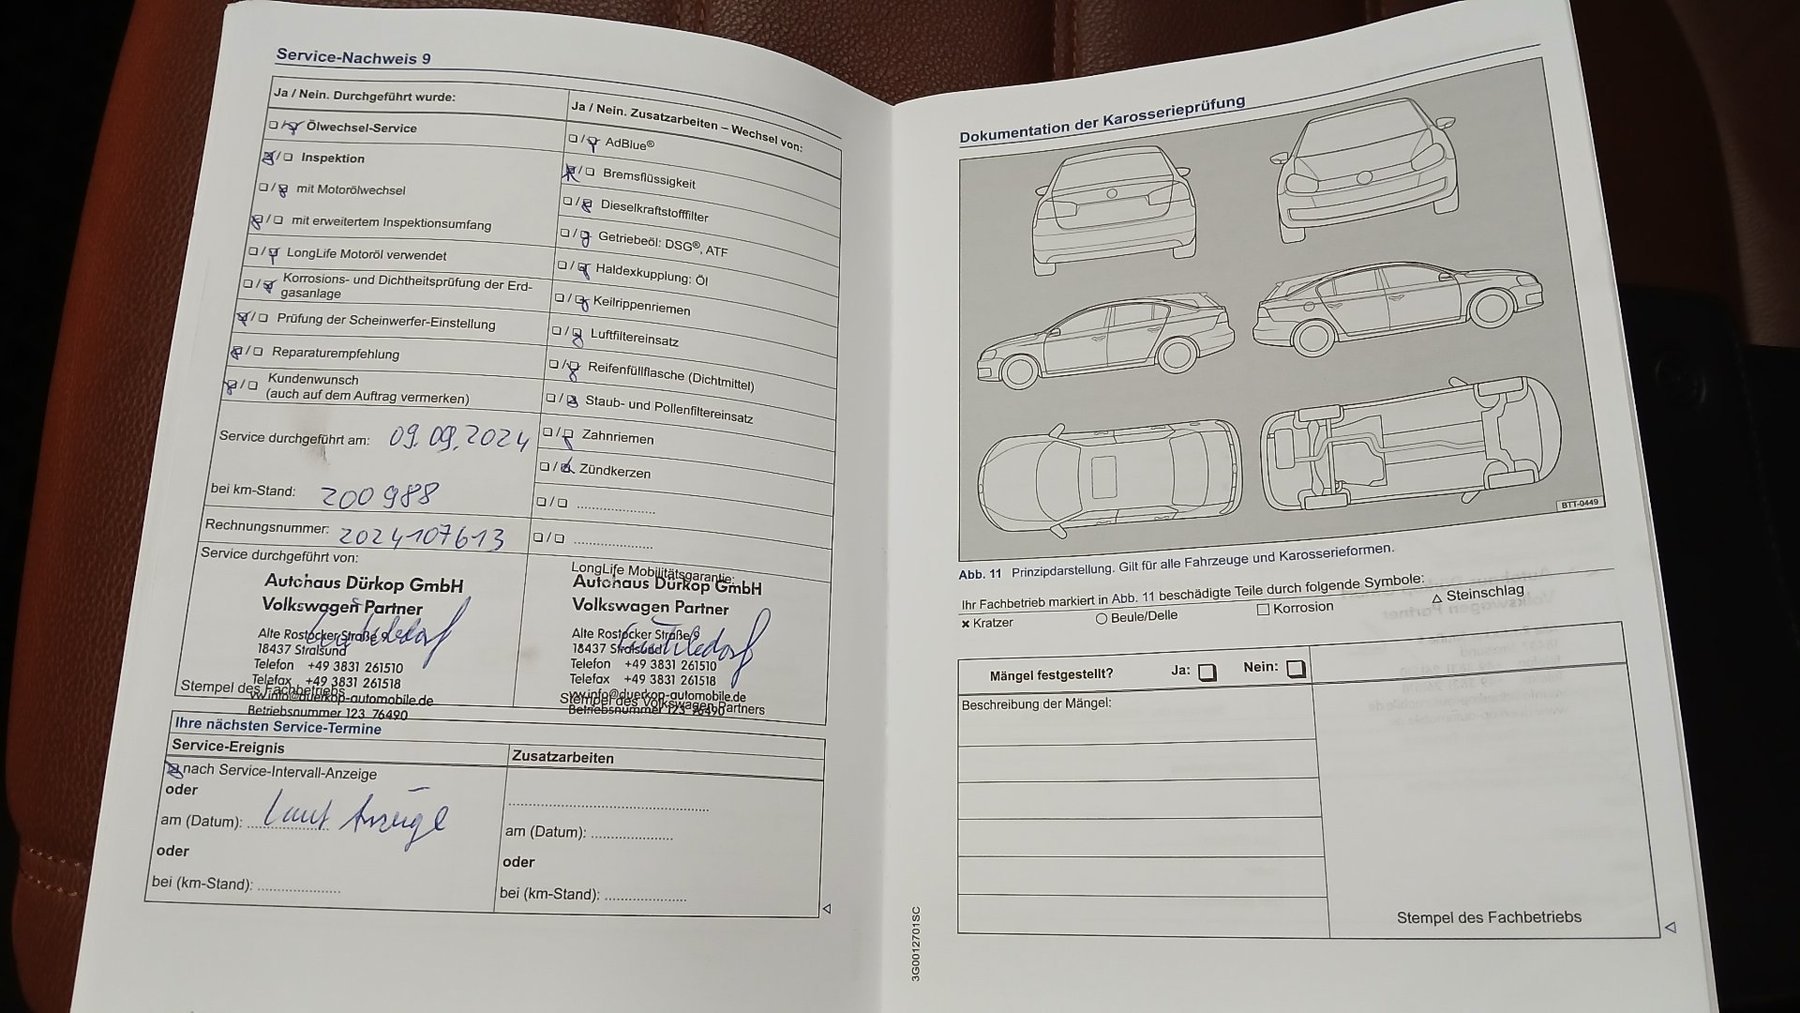 Service-Nachweis 9
Ja / Nein. Durchgeführt wurde:
Ölwechsel-Service
Inspektion
mit Motorölwechsel
mit erweitertem Inspektionsumfang
LongLife Motoröl verwendet
Korrosions- und Dichtheitsprüfung der Erd-
gasanlage
Prüfung der Scheinwerfer-Einstellung
Reparaturempfehlung
Kundenwunsch
(auch auf dem Auftrag vermerken)
Service durchgeführt am: 09.09.2024
bei km-Stand: 200 988
Rechnungsnummer: 2024107613
Service durchgeführt von:
Autohaus Dürkop GmbH
Volkswagen Partner
Alte Rostocker Straße 9
18437 Stralsund
Telefon +49 3831 261510
Telefax +49 3831 261518
Stempel des Fachbetriebs
vw.info@duerkop-automobile.de
Betriebsnummer 123 76490
Ja / Nein. Zusatzarbeiten – Wechsel von:
AdBlue®
Bremsflüssigkeit
Dieselkraftstofffilter
Getriebeöl: DSG®, ATF
Haldexkupplung: Öl
Keilrippenriemen
Luftfiltereinsatz
Reifenfüllflasche (Dichtmittel)
Staub- und Pollenfiltereinsatz
Zahnriemen
Zündkerzen
LongLife Mobilitätsgarantie:
Autohaus Dürkop GmbH
Volkswagen Partner
Alte Rostocker Straße 9
18437 Stralsund
Telefon +49 3831 261510
Telefax +49 3831 261518
vw.info@duerkop-automobile.de
Stempel des Volkswagen Partners
Betriebsnummer 123 76490
Ihre nächsten Service-Termine
Service-Ereignis
nach Service-Intervall-Anzeige
oder
am (Datum): Laut Anzeige
oder
bei (km-Stand):
Zusatzarbeiten
am (Datum):
oder
bei (km-Stand):
Dokumentation der Karosserieprüfung
BTT-0449
Abb. 11 Prinzipdarstellung. Gilt für alle Fahrzeuge und Karosserieformen.
Ihr Fachbetrieb markiert in Abb. 11 beschädigte Teile durch folgende Symbole:
Kratzer Beule/Delle Korrosion Steinschlag
Mängel festgestellt? Ja: Nein:
Beschreibung der Mängel:
Stempel des Fachbetriebs
3G0012701SC